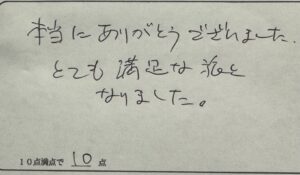 本当にありがとうございました.
とても満足な旅と
なりました。
10点満点で 10 点